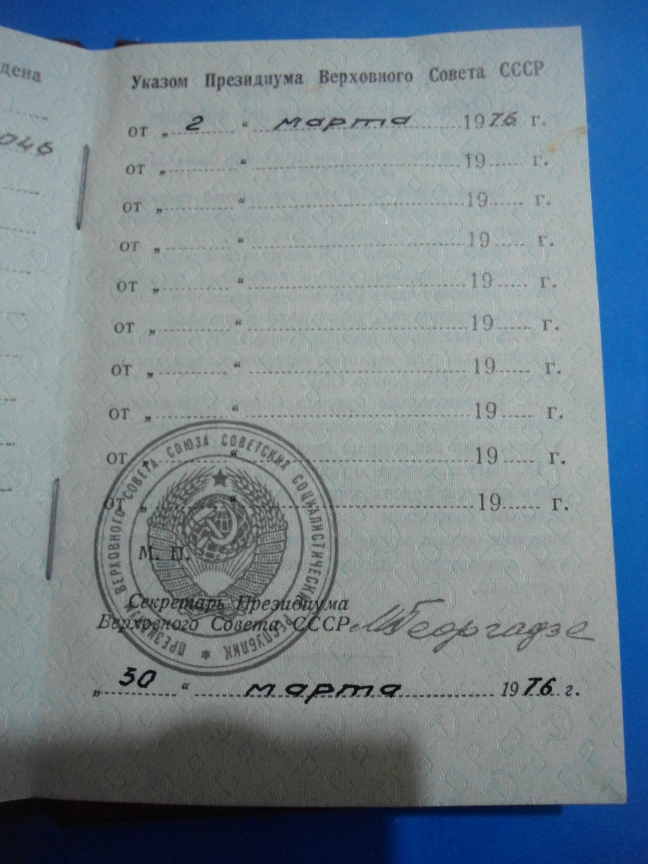 дена
046
Указом Президиума Верховного Совета СССР
от „ 2 “ марта 1976 г.
от „ “ 19 г.
от „ “ 19 г.
от „ “ 19 г.
от „ “ 19 г.
от „ “ 19 г.
от „ “ 19 г.
от „ “ 19 г.
от „ “ 19 г.
от „ “ 19 г.
ПРЕЗИДИУМ ВЕРХОВНОГО СОВЕТА СОЮЗА СОВЕТСКИХ СОЦИАЛИСТИЧЕСКИХ РЕСПУБЛИК
М. П.
Секретарь Президиума
Верховного Совета СССР МГеоргадзе
„ 30 “ марта 1976 г.